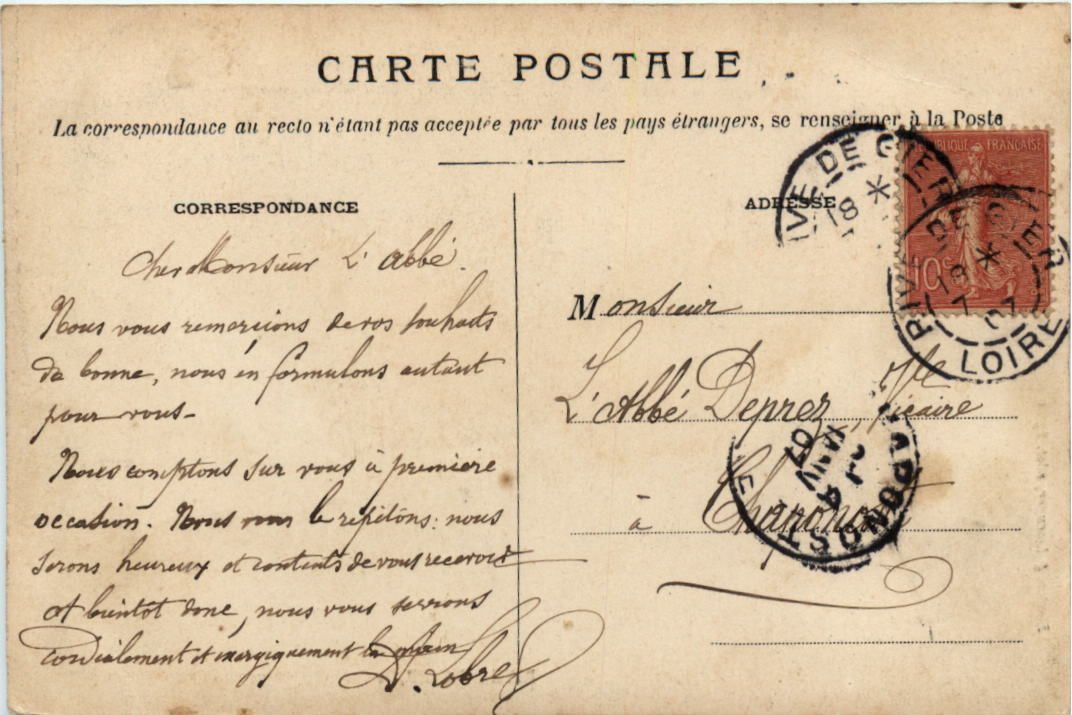 CARTE POSTALE
La correspondance au recto n'étant pas acceptée par tous les pays étrangers, se renseigner à la Poste
CORRESPONDANCE
Cher Monsieur L'abbé.
Nous vous remercions de vos souhaits
de bonne, nous en formulons autant
pour vous-
Nous comptons sur vous à première
occasion. Nous le répétons: nous
serons heureux et contents de vous recevoir
et bientôt donc, nous vous serrons
cordialement et énergiquement la main
ADRESSE
Monsieur
L'Abbé Deprez, Vicaire
à Chaponost
RÉPUBLIQUE FRANÇAISE
10c
IVE DE GIER
18
RIVE-DE-GIER
18
7
07
LOIRE
CHAPONOST
4
JANV
07